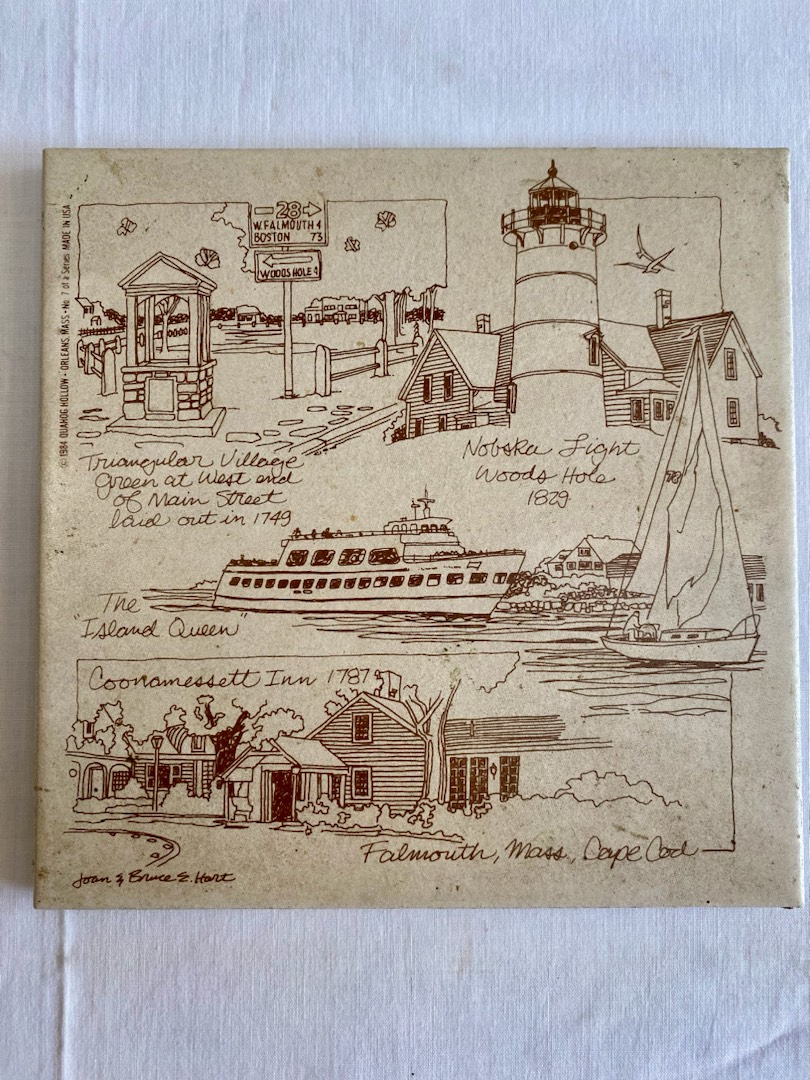 © 1984 QUAHOG HOLLOW • ORLEANS, MASS • No. 7 of a Series MADE IN USA
28
W. FALMOUTH 4
BOSTON 73
WOODS HOLE 4
Triangular Village
green at West end
of Main Street
laid out in 1749
Nobska Light
Woods Hole
1829
The
"Island Queen"
Coonamessett Inn 1787
Falmouth, Mass., Cape Cod
Joan & Bruce E. Hart